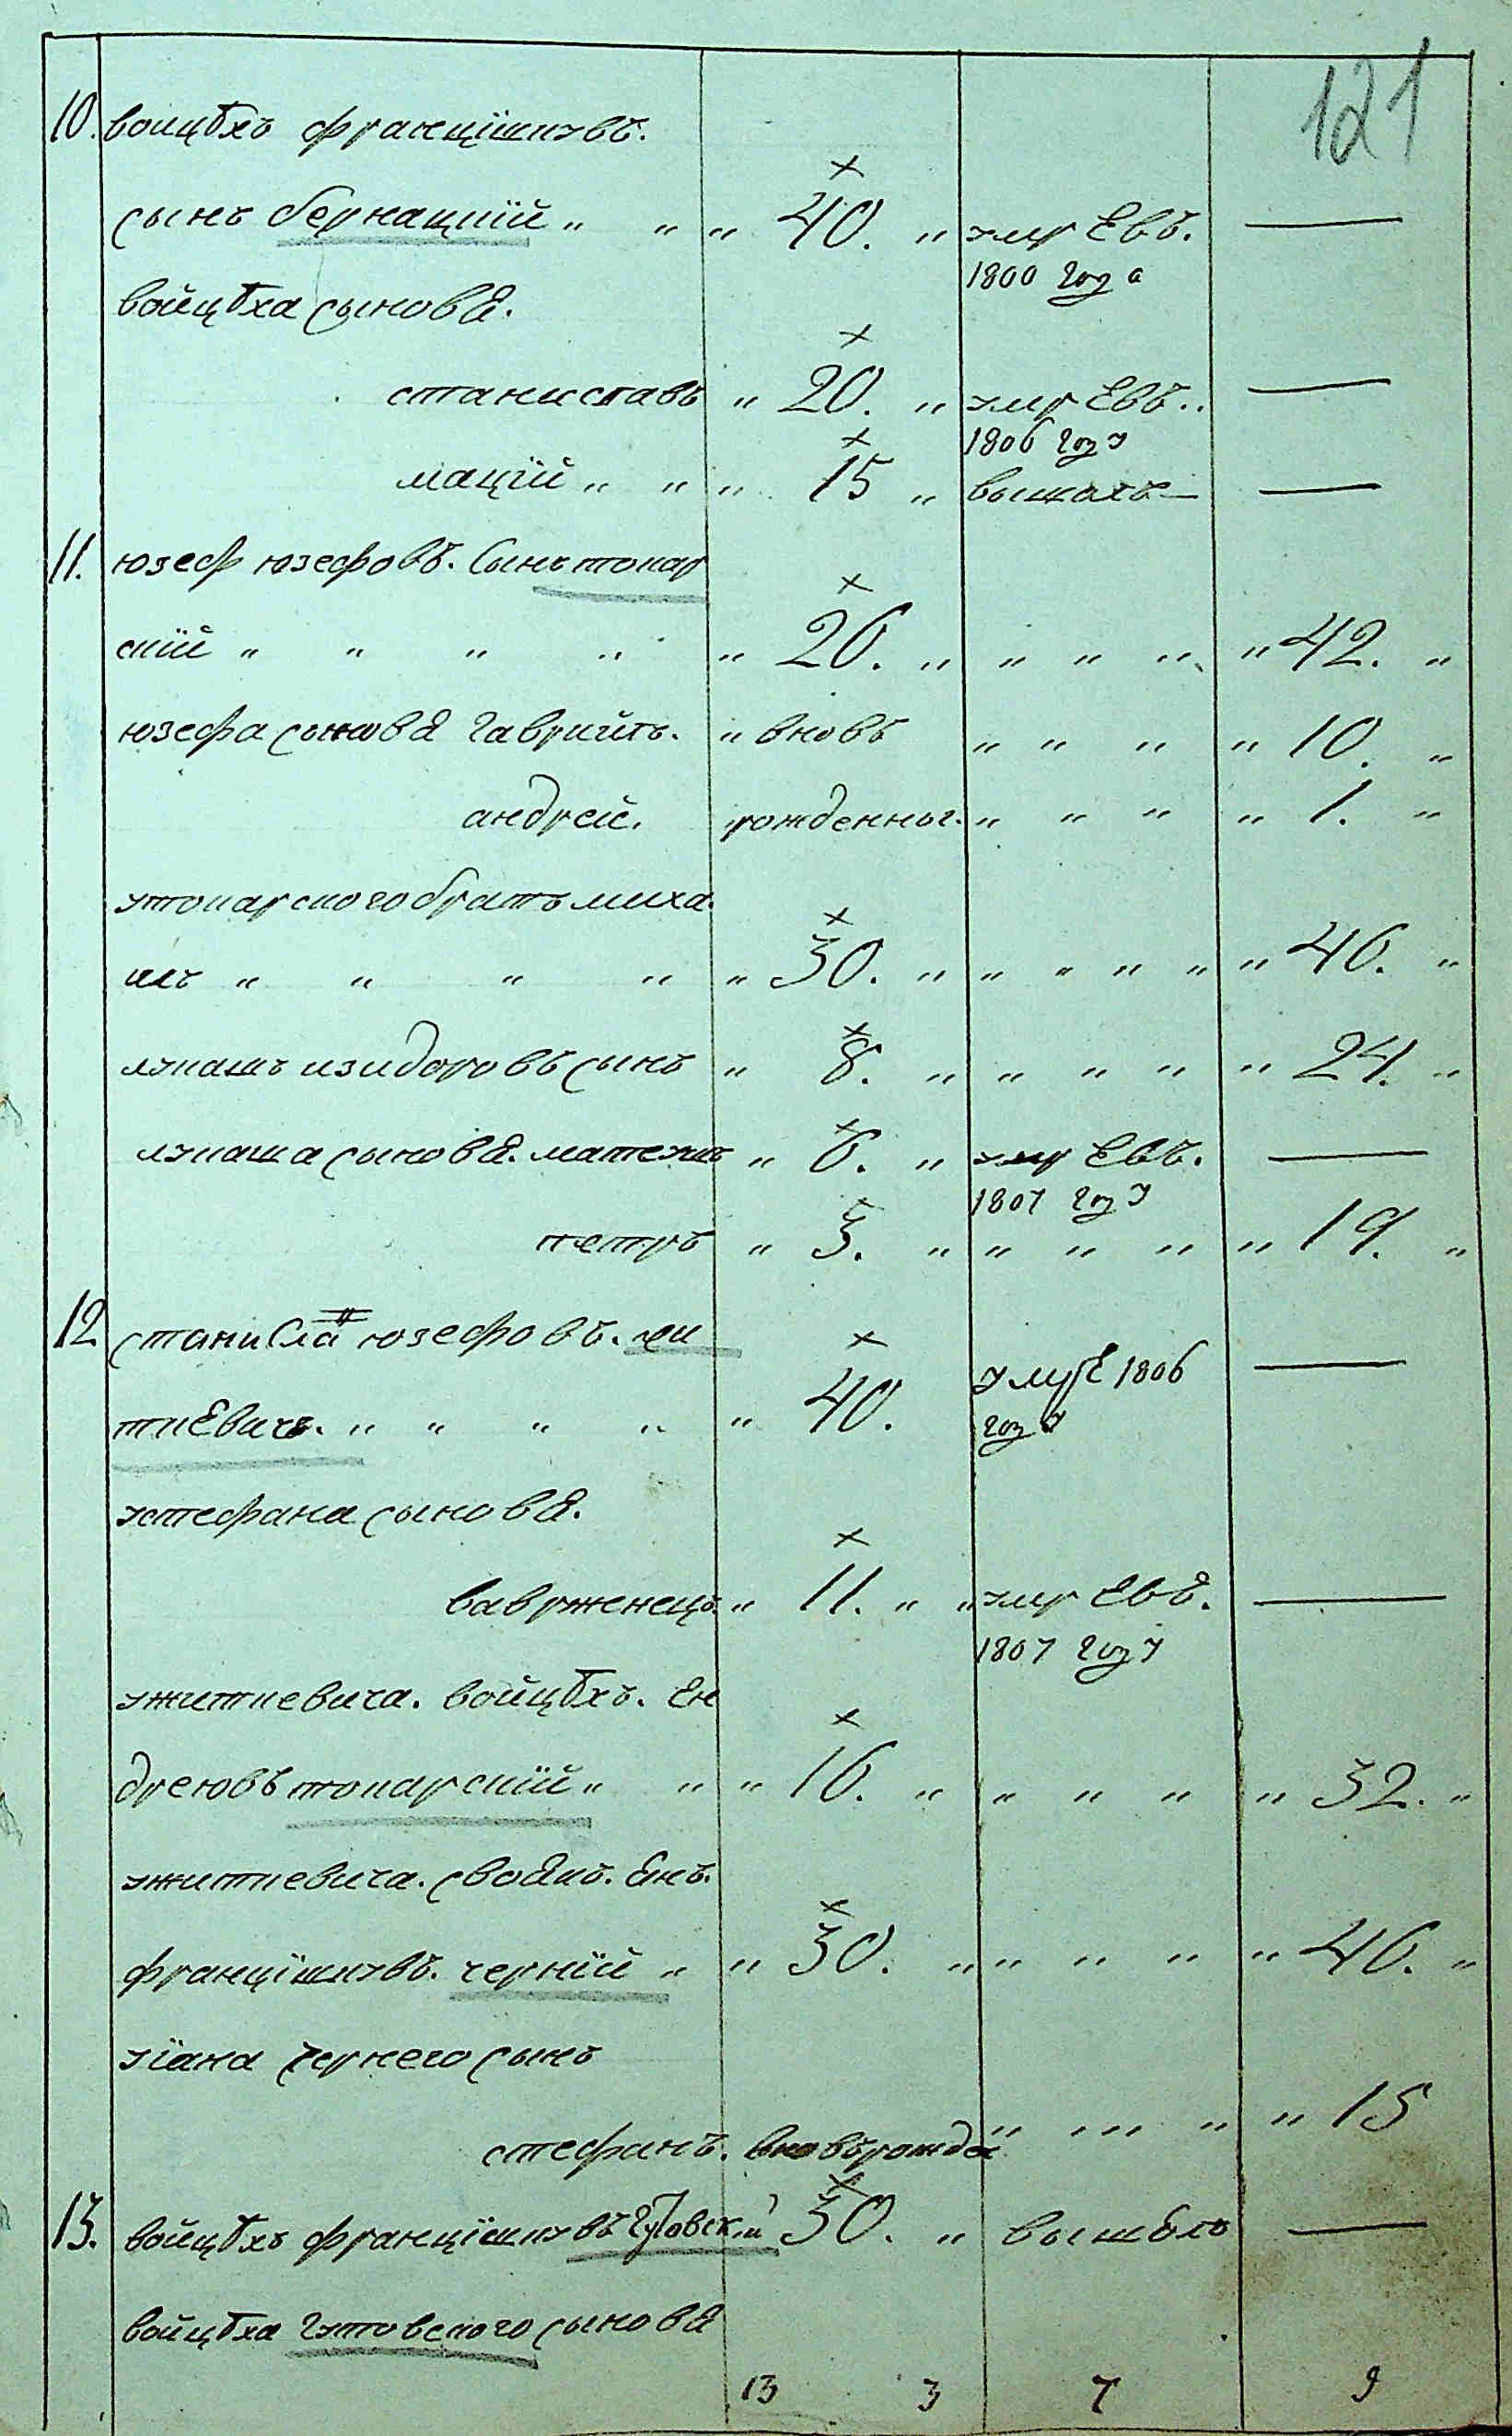 121
10. воицѣхъ францїшкувъ.
сынъ бернацкїй „ „ „ 40. „ умр Евъ. —
1800 года
войцѣха сыновя.
станиславъ „ 20. „ умр Евъ.. —
1806 году
мацїй „ „ „ 15 „ вышолъ —
11. юзеф юзефовъ. Сынъ токар
скїй „ „ „ „ „ 26. „ „ „ „ „ 42. „
юзефа сыновя Гаврийлъ. „ вновь „ „ „ „ 10. „
андрей. рожденныя. „ „ „ „ 1. „
утокарского братъ миха
илъ „ „ „ „ „ 30. „ „ „ „ „ „ 46. „
лукашъ изидоровъ сынъ „ 8. „ „ „ „ „ 24. „
лукаша сыновя. матеушъ „ 6. „ умр Евъ. —
1807 году
петръ „ 3. „ „ „ „ „ 19. „
12 Станисла юзефовъ. жи
ткЕвичъ. „ „ „ „ „ 40. умрЕ 1806 —
году
устефана сыновя.
ваврженецъ. „ 11. „ „ умр Евъ. —
1807 году
ужиткевича. войцѣхъ. Ен
дреювъ токарскїй „ „ „ 16. „ „ „ „ „ 32. „
ужиткевича. своякъ. Янъ.
францїшкувъ. чернїй „ „ 30. „ „ „ „ „ 46. „
уїана чернего сынъ
стефанъ. вновьрожде „ „ „ „ „ 15
13. войцѣхъ францїшкувъ Гутовскій 30. „ вышолъ —
войцѣха гутовского сыновя
13 3 7 9